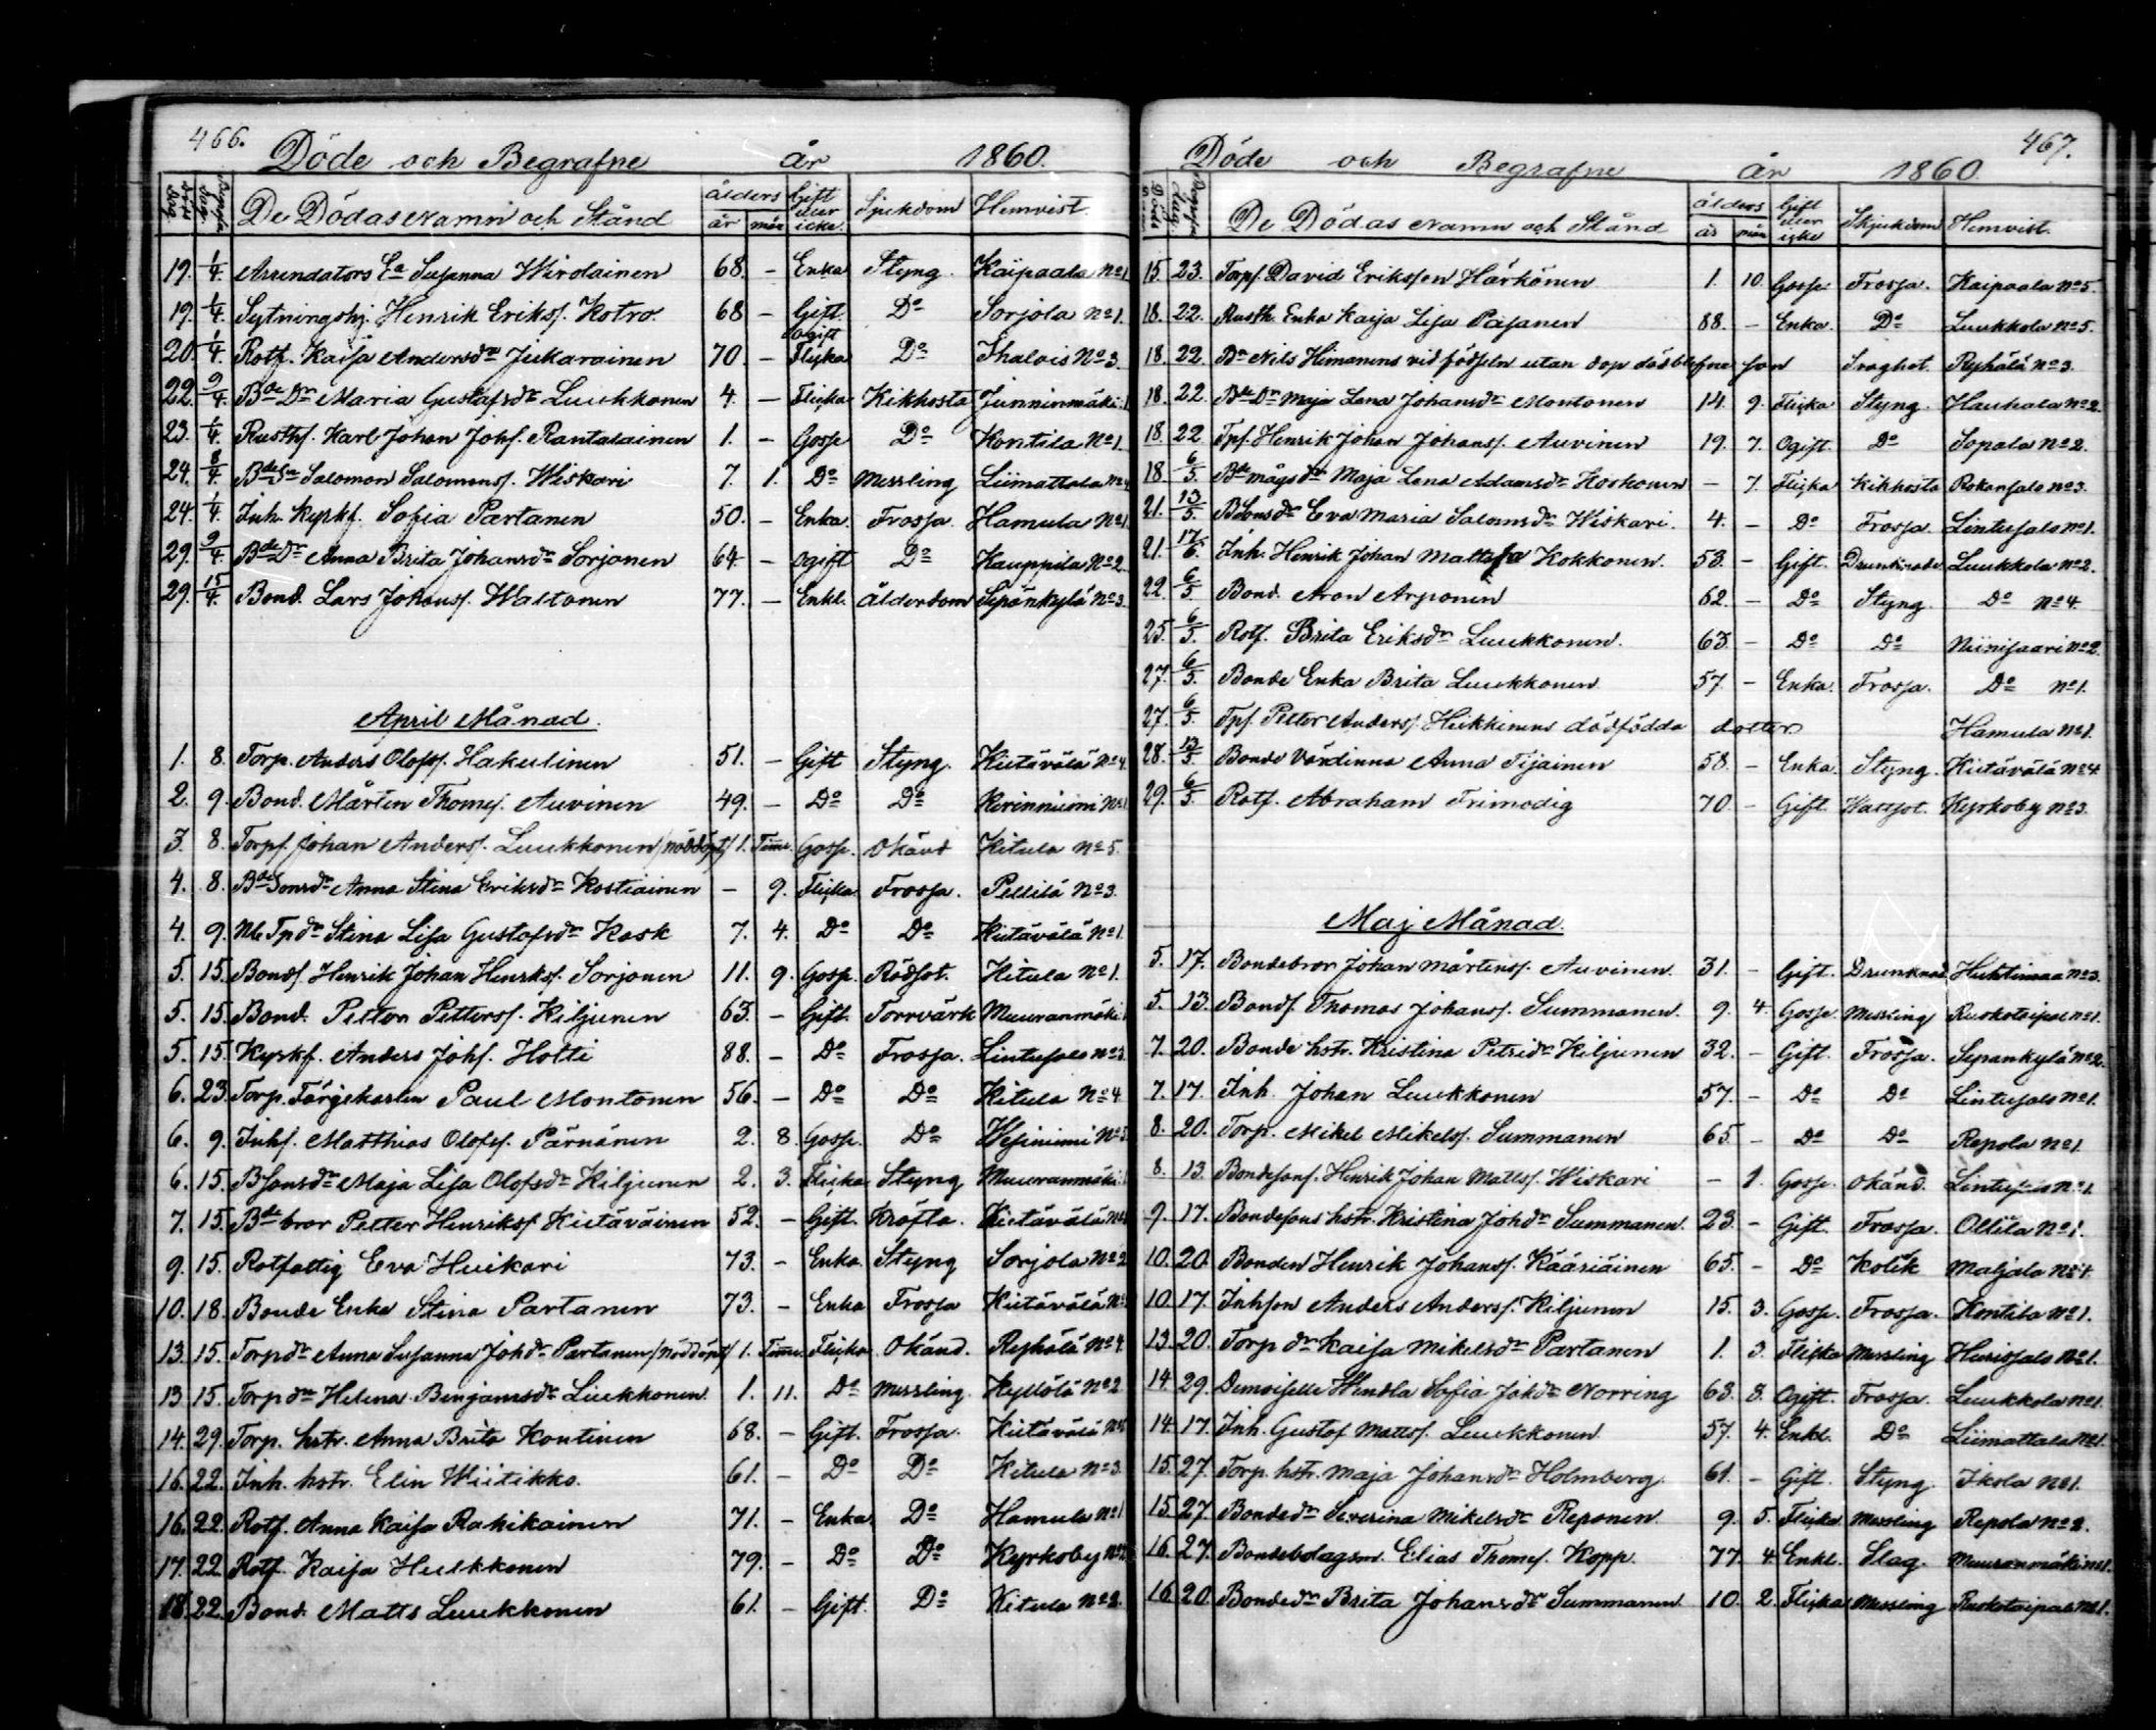 466.
Döde och Begrafne år 1860.
Döds Dag. Begrafn. Dag. De Dödas Namn och Stånd ålders år mån Gift eller icke. Sjukdom Hemvist.
19. 1/4. Arrendators Ea Susanna Wirolainen 68. - Enka Styng. Kaipaala No 1
19. 1/4. Sytningshj. Henrik Eriks. Kotro. 68 - Gift Do Sorjola No 1.
20. 1/4. Rotf. Kaisa Andersdr Jukarainen 70. - Ogift Flicka Do Ihalais No 3.
22. 9/4. Bde Dr Maria Gustafsdr Luukkonen 4. - Flicka Kikhosta Junninmäki 1
23. 1/4. Rusth. Karl Johan Johs. Rantalainen 1. - Gosse Do Kontila No 1.
24. 8/4. Bde Sn Salomon Salomons. Wiskari 7. 1. Do Messling Liimattala No 4
24. 1/4. Inh. Kyrkf. Sofia Partanen 50. - Enka. Frossa. Hamula No 1.
29. 9/4. Bde Dr Anna Brita Johansdr Sorjonen 64. - Ogift Do Kauppila No 2.
29. 15/4. Bond. Lars Johans. Waltonen 77. - Enkl. Ålderdom Sipänkylä No 3.
April Månad.
1. 8. Torp. Anders Olofs. Hakulinen 51. - Gift Styng. Kietävälä No 4.
2. 9. Bond. Mårten Thomes. Auvinen 49. - Do Do Kirinniemi No 1
3. 8. Torps. Johan Anders. Luukkonen /nöddöpt/ 1. Timme. Gosse. Okänd Kitula No 5.
4. 8. Bde Sonsdr Anna Stina Eriksdr Kostiainen - 9. Flicka. Frossa. Pellilä No 3.
4. 9. Nb Tpdr Stina Lisa Gustafsdr Kask 7. 4. Do Do Kietävälä No 1.
5. 15. Bonds. Henrik Johan Henriks. Sorjonen 11. 9. Gosse. Rödsot. Kitula No 1.
5. 15. Bond. Petter Petters. Kiljunen 63. - Gift. Torrvärk Muuranmäki 1
5. 15. Kyrkf. Anders Johs. Holti 88. - Do Frossa. Lintusalo No 3.
6. 23. Torp. Färjekarlen Paul Montonen 56. - Do Do Kitula No 4.
6. 9. Inhs. Matthias Olofs. Pärnänen 2. 8. Gosse. Do Wesiniemi No 5
6. 15. Bsonsdr Maja Lisa Olofsdr Kiljunen 2. 3. Flicka Styng Muuranmäki 1
7. 15. Bde bror Petter Henriks. Kietäväinen 52. - Gift. Kräfta. Kietävälä No
9. 15. Rotfattig Eva Huikari 73. - Enka. Styng Sorjola No 2
10. 18. Bonde Enka Stina Partanen 73. - Enka Frossa Kietävälä No
13. 15. Torpdr Anna Susanna Johdr Partanen /nöddöpt/ 1. Timme. Flicka Okänd. Ryhälä No 4.
13. 15. Torpdr Helena Benjamsdr Luukkonen. 1. 11. Do Messling. Kyllölä No 2.
14. 29. Torp. hstr. Anna Brita Kontinen 68. - Gift. Frossa. Kietävälä No
16. 22. Inh. hstr. Elin Wiitikko. 61. - Do Do Kitula No 3.
16. 22. Rotf. Anna Kaisa Rahikainen 71. - Enka Do Hamula No 1
17. 22. Rotf. Kaisa Hulkkonen 79. - Do Do Kyrkoby No
18. 22. Bond. Matts Luukkonen 61. - Gift. Do Kitula No 2.
467.
Döde och Begrafne år 1860
Döds Begrafn. Dag. De Dödas Namn och Stånd ålders år mån Gift eller icke Skjukdom Hemvist.
15. 23. Torps. David Eriksson Härkönen 1. 10. Gosse. Frossa. Kaipaala No 5.
18. 22. Rusth. Enka Kaisa Lisa Pasanen 88. - Enka. Do Luukkola No 5.
18. 22. Bn Nils Himanens vid födseln utan dop dödblefne son Svaghet. Ryhälä No 3.
18. 22. Bde Dr Maja Lena Johansdr Montonen 14. 9. Flicka Styng. Haukala No 2.
18. 22. Tps. Henrik Johan Johans. Auvinen 19. 7. Ogift. Do Sopala No 2.
18 6/5. Bde mågsdr Maja Lena Adamsdr Koskonen - 7. Flicka Kikhosta Rokansalo No 3.
21. 13/5. BSonsdr Eva Maria Salomsdr Wiskari. 4. - Do Frossa. Lintusalo No 1.
21. 17/6. Inh. Henrik Johan Mattss. Kokkonen. 53. - Gift. Drunknade. Luukkola No 2.
22. 6/5. Bond. Aron Arponen 62. - Do Styng. Do No 4.
25. 6/5. Rotf. Brita Eriksdr Luukkonen. 63. - Do Do Niinisaari No 2.
27. 6/5. Bonde Enka Brita Luukkonen 57. - Enka. Frossa. Do No 1.
27. 6/5. Tps. Petter Anders. Heikkinens dödfödda dotter Hamula No 1.
28. 13/5. Bonde Värdinna Anna Tijainen 58. - Enka. Styng. Kietävälä No 4.
29. 6/5. Rotf. Abraham Frimodig 70. - Gift. Wattsot. Kyrkoby No 3.
Maj Månad.
5. 17. Bondebror Johan Mårtens. Auvinen. 31. - Gift. Drunknad. Huhtimaa No 3.
5. 13. Bonds. Thomas Johans. Summanen. 9. 4. Gosse. Messling Ruokotaipal No 1.
7. 20. Bonde hstr. Kristina Petridr Kiljunen 32. - Gift. Frossa. Sepankylä No 2.
7. 17. Inh. Johan Luukkonen 57. - Do Do Lintusalo No 1.
8. 20. Torp. Mikel Mikels. Summanen 65. - Do Do Repola No 1.
8. 13. Bondesons. Henrik Johan Matts. Wiskari - 1. Gosse. Okänd. Lintusalo No 1.
9. 17. Bondesons hstr. Kristina Johdr Summanen. 23. - Gift. Frossa. Ollila No 1.
10. 20. Bonden Henrik Johans. Kääriäinen 65. - Do Kolik Maljala No 4.
10. 17. Inhson Anders Anders. Kiljunen 15. 3. Gosse. Frossa. Kontila No 1.
13. 20. Torpdr Kaisa Mikelsdr Partanen 1. 3. Flicka Messling Hurissalo No 1.
14. 29. Demoiselle Wendla Sofia Johdr Norring 63. 8. Ogift. Frossa. Luukkola No 1.
14. 17. Inh. Gustaf Matts. Luukkonen. 57. 4. Enkl. Do Liimattala No 1.
15. 27. Torp. hstr. Maja Johansdr Holmberg. 61. - Gift. Styng. Ikola No 1.
15. 27. Bondedr Severina Mikelsdr Reponen. 9. 5. Flicka Messling Repola No 2.
16. 27. Bondebolagsm. Elias Thomes. Kopp. 77. 4. Enkl. Slag. Muuranmäki No 1.
16. 20. Bondedr Brita Johansdr Summanen. 10. 2. Flicka Messling Ruokotaipal No 1.